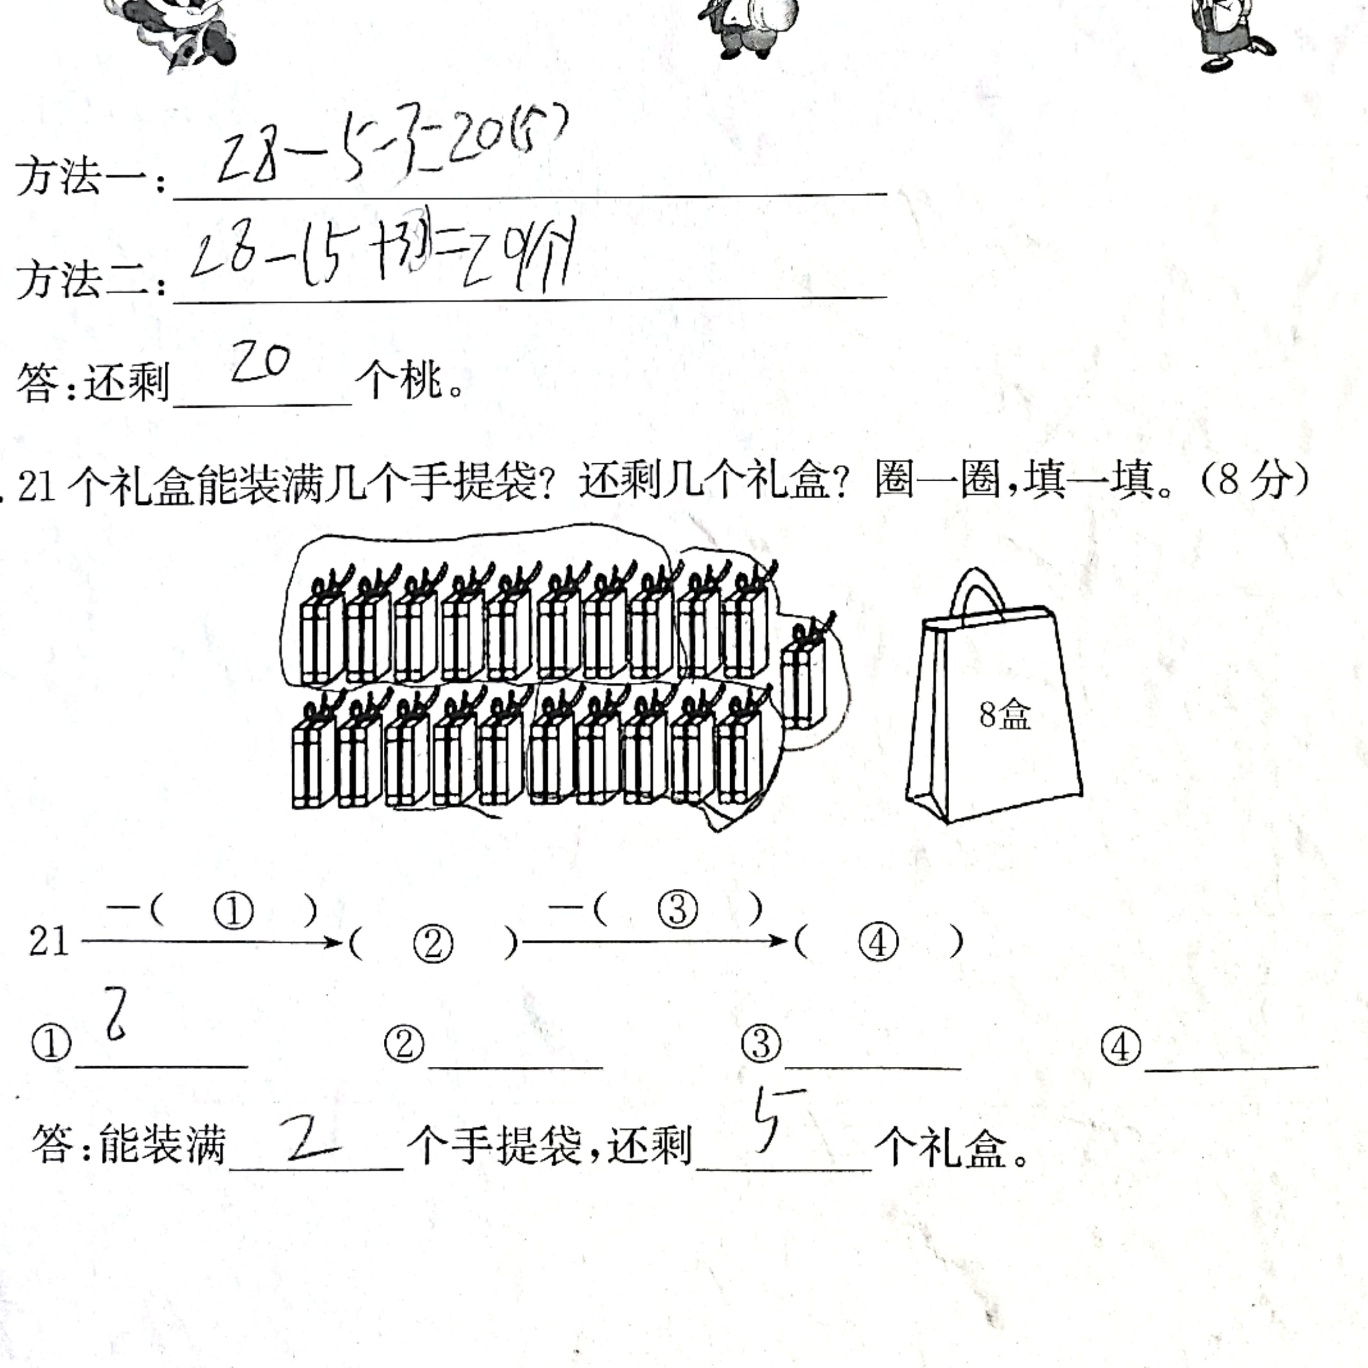 方法一:28-5-3=20(个)
方法二:28-(5+3)=20(个)
答:还剩 20 个桃。
. 21个礼盒能装满几个手提袋? 还剩几个礼盒? 圈一圈,填一填。(8分)
8盒
-( ① ) -( ③ )
21 ( ② ) ( ④ )
① 8 ② ③ ④
答:能装满 2 个手提袋,还剩 5 个礼盒。